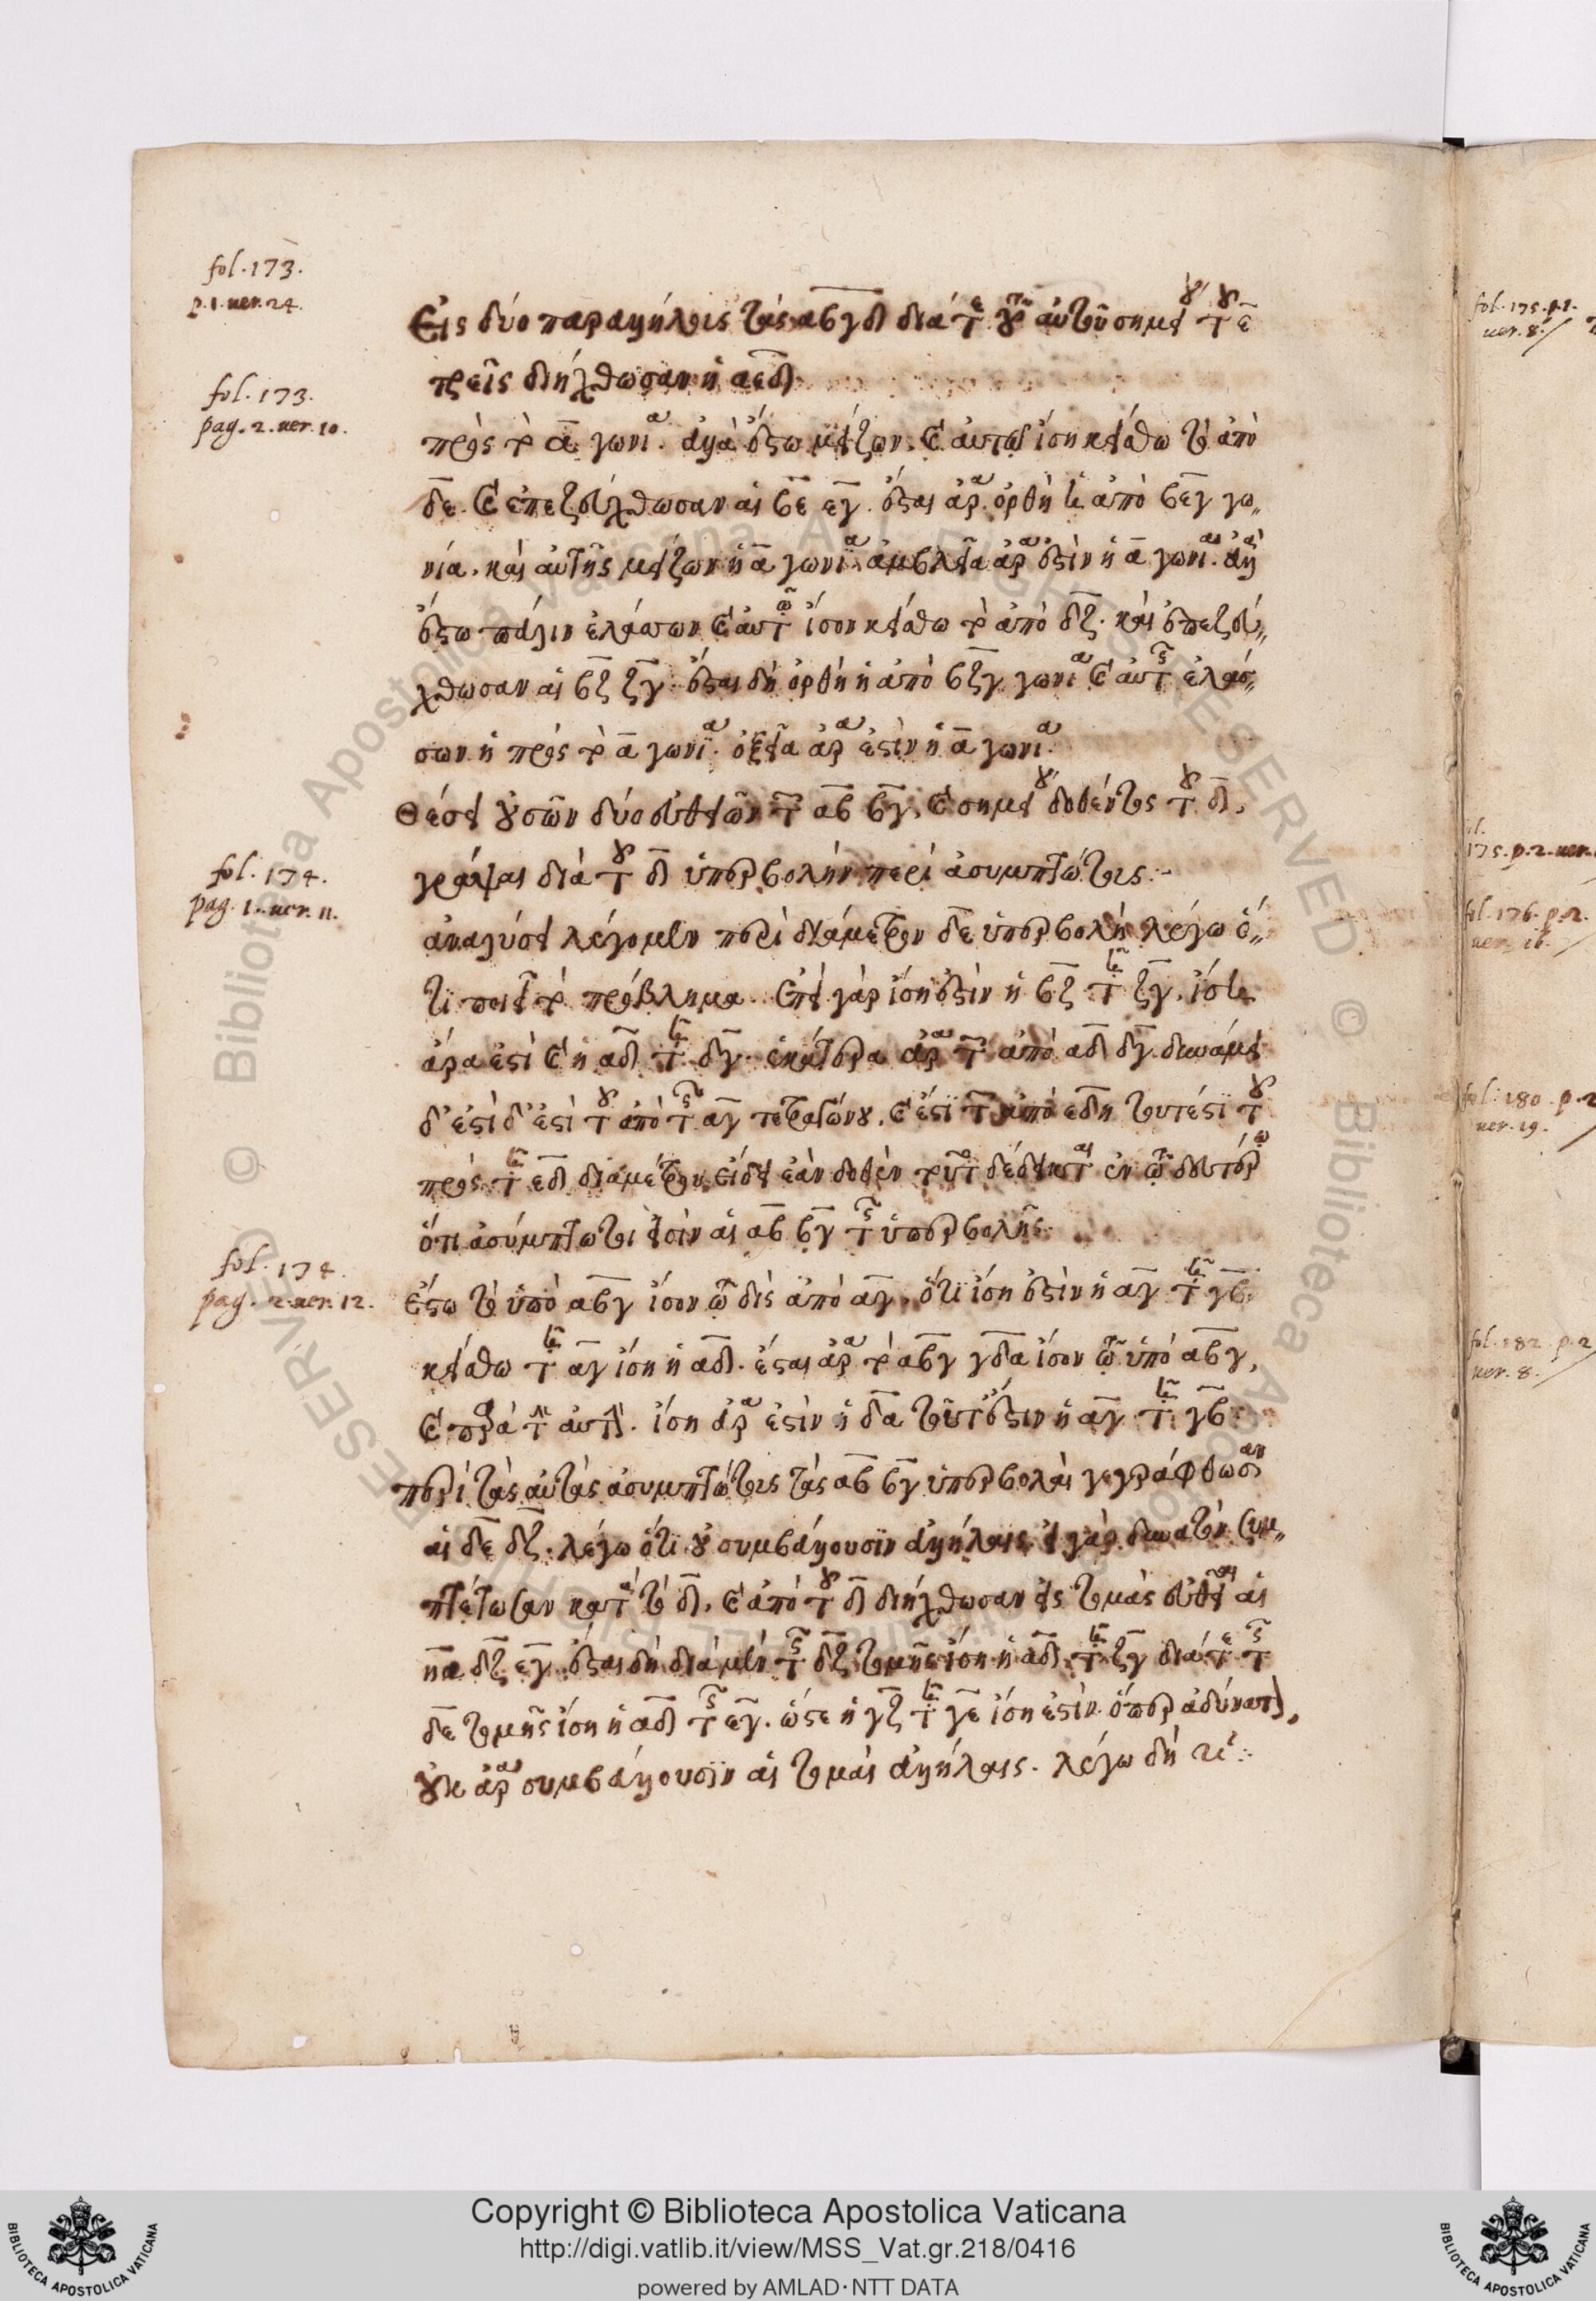 fol. 173.
p. 1. uer. 24.
Εἰς δύο παραλλήλους τὰς αβ γδ διὰ τε τοῦ αὐτοῦ σημείου τοῦ ε
τρεῖς διήχθωσαν ἡ αεδ
fol. 173.
pag. 2. uer. 10.
πρὸς τῷ α γωνία. ἀλλὰ ἔστω μείζων. καὶ αὐτῇ ἴση κείσθω τὸ ἀπὸ
δε. καὶ ἐπεζεύχθωσαν αἱ βε εγ. ἔσται ἄρα ὀρθὴ ἡ ἀπὸ βεγ γω
νία. καὶ αὐτῆς μείζων ἡ α γωνία. ἀμβλεῖα ἄρα ἐστὶν ἡ α γωνία. ἀλλὰ
ἔστω πάλιν ἐλάσσων καὶ αὐτῷ ἴσον κείσθω τὸ ἀπὸ δζ. καὶ ἐπεζεύ
χθωσαν αἱ βζ ζγ. ἔσται δὴ ὀρθὴ ἡ ἀπὸ βζγ γωνία καὶ αὐτῆς ἐλάσ
σων ἡ πρὸς τῷ α γωνία. ὀξεῖα ἄρα ἐστὶν ἡ α γωνία.
Θέσει οὐσῶν δύο εὐθειῶν τῶν αβ βγ, καὶ σημείου δοθέντος τοῦ δ,
γράψαι διὰ τοῦ δ ὑπερβολὴν περὶ ἀσυμπτώτους.
fol. 174.
pag. 1. uer. 11.
περὶ διάμετρον δε ὑπερβολή λέγω ὅ
τι ποιεῖ τὸ πρόβλημα. Ἐπεὶ γὰρ ἴση ἐστὶν ἡ βζ τῇ ζγ, ἴση
ἄρα ἐστὶ καὶ ἡ αδ τῇ δγ. ἑκατέρα ἄρα τῶν ἀπὸ αδ δγ δυνάμει
δ´ ἐστὶ δ´ ἐστὶ τοῦ ἀπὸ τῆς αγ τετραγώνου.
πρὸς τῇ εδ διαμέτρῳ
ὅτι ἀσύμπτωτοί εἰσὶν αἱ αβ βγ τῆς ὑπερβολῆς
fol. 174.
pag. 2. uer. 12.
ἔστω τὸ ὑπὸ αβγ ἴσον τῷ δὶς ἀπὸ αγ, ὅτι ἴση ἐστὶν ἡ αγ τῇ γβ.
κείσθω τῇ αγ ἴση ἡ αδ. ἔσται ἄρα τὸ αβγ γδα ἴσον τῷ ὑπὸ αβγ,
καὶ παρὰ τὴν αὐτήν. ἴση ἄρα ἐστὶν ἡ δα τουτέστιν ἡ αγ τῇ γβ
περὶ τὰς αὐτὰς ἀσυμπτώτους τὰς αβ βγ ὑπερβολαὶ γεγράφθωσαν
αἱ δε δζ. λέγω ὅτι οὐ συμβάλλουσιν ἀλλήλαις εἰ γὰρ δυνατὸν συμ
πτέτωσαν κατὰ τὸ δ, καὶ ἀπὸ τοῦ δ διήχθωσαν εἰς τομὰς εὐθεῖαι αἱ
ηα δζ εγ. ἔσται δὴ διὰ μὲν τῆς δζ τομῆς ἴση ἡ αδ τῇ ζγ διὰ τε τῆς
δε τομῆς ἴση ἡ αδ τῆς εγ. ὥστε ἡ γζ τῇ γε ἴση ἐστὶν. ὅπερ ἀδύνατον,
οὐκ ἄρα συμβάλλουσιν αἱ τομαὶ ἀλλήλαις. λέγω δὴ
fol. 175. p. 1.
uer. 8.
175. p. 2. uer.
fol. 176. p. 2.
uer. 16.
fol. 180. p. 2
uer. 19.
fol. 182. p. 2
uer. 8.
Copyright © Biblioteca Apostolica Vaticana
http://digi.vatlib.it/view/MSS_Vat.gr.218/0416
powered by AMLAD·NTT DATA
BIBLIOTECA APOSTOLICA VATICANA
BIBLIOTECA APOSTOLICA VATICANA